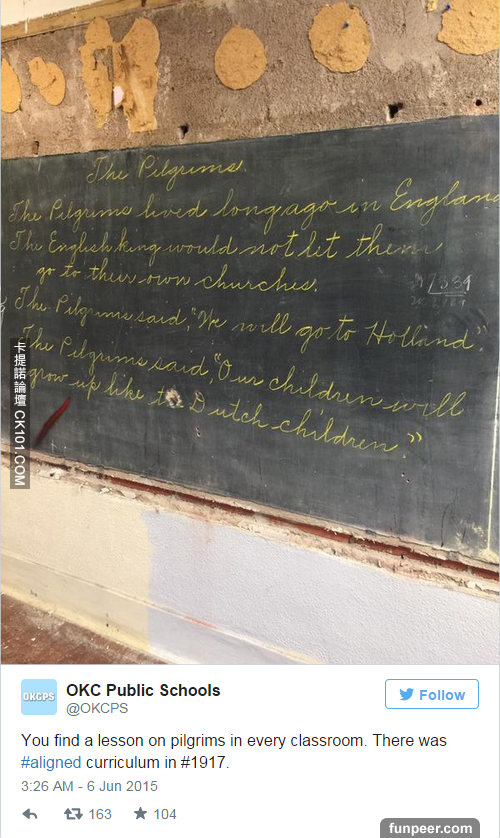 The Pilgrims.
The Pilgrims lived long ago in England
The English king would not let them
go to their own churches.
The Pilgrims said, "We will go to Holland."
The Pilgrims said, "Our children will
grow up like the Dutch children."
卡提諾論壇 CK101.COM
OKCPS
OKC Public Schools
@OKCPS
Follow
You find a lesson on pilgrims in every classroom. There was
#aligned curriculum in #1917.
3:26 AM - 6 Jun 2015
163
104
funpeer.com